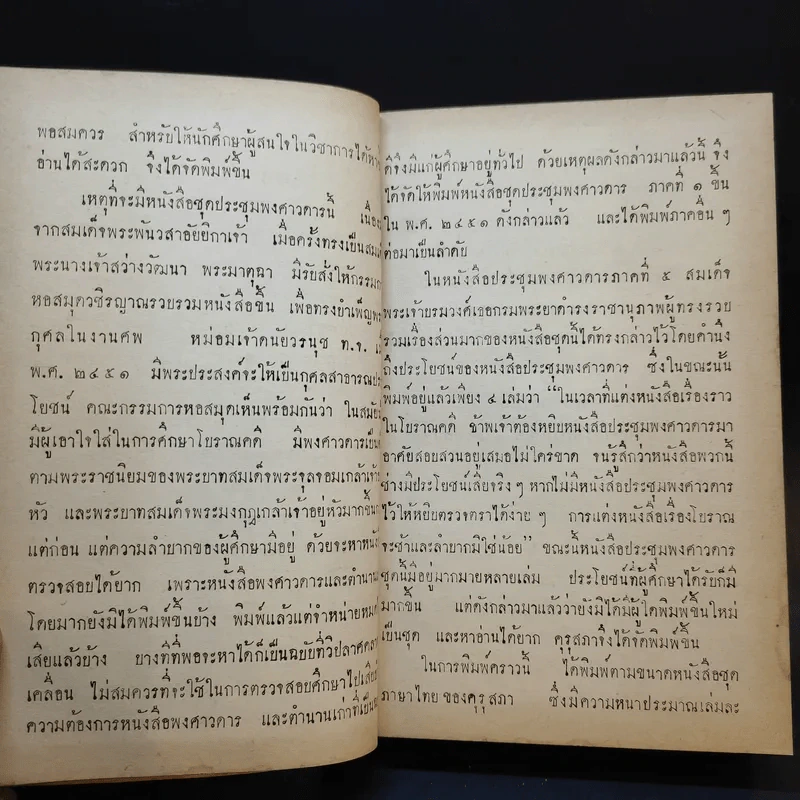 พอสมควร สำหรับให้นักศึกษาผู้สนใจในวิชาการได้หา
อ่านได้สะดวก จึงได้จัดพิมพ์ขึ้น
เหตุที่จะมีหนังสือชุดประชุมพงศาวดารนี้ เนื่อง
จากสมเด็จพระพันวสาอัยยิกาเจ้า เมื่อครั้งทรงเป็นสมเด็จ
พระนางเจ้าสว่างวัฒนา พระมาตุฉา มีรับสั่งให้กรรมการ
หอสมุดวชิรญาณรวบรวมหนังสือขึ้น เพื่อทรงบำเพ็ญพระ
กุศลในงานศพ หม่อมเจ้าดนัยวรนุช ท.จ.
พ.ศ. ๒๔๕๑ มีพระประสงค์จะให้เป็นกุศลสาธารณประ
โยชน์ คณะกรรมการหอสมุดเห็นพร้อมกันว่า ในสมัย
มีผู้เอาใจใส่ในการศึกษาโบราณคดี มีพงศาวดารเป็น
ตามพระราชนิยมของพระบาทสมเด็จพระจุลจอมเกล้าเจ้า
หัว และพระบาทสมเด็จพระมงกุฎเกล้าเจ้าอยู่หัวมากขึ้น
แต่ก่อน แต่ความลำบากของผู้ศึกษามีอยู่ ด้วยจะหาหนัง
ตรวจสอบได้ยาก เพราะหนังสือพงศาวดารและตำนาน
โดยมากยังมิได้พิมพ์ขึ้นบ้าง พิมพ์แล้วแต่จำหน่ายหมด
เสียแล้วบ้าง บางที่ที่พอจะหาได้ก็เป็นฉบับที่วิปลาศคลาด
เคลื่อน ไม่สมควรที่จะใช้ในการตรวจสอบศึกษาไปเสีย
ความต้องการหนังสือพงศาวดาร และตำนานเก่าที่เป็น
ดีจึงมีแก่ผู้ศึกษาอยู่ทั่วไป ด้วยเหตุผลดังกล่าวมาแล้วนี้ จึง
ได้จัดให้พิมพ์หนังสือชุดประชุมพงศาวดาร ภาคที่ ๑ ขึ้น
ใน พ.ศ. ๒๔๕๑ ดังกล่าวแล้ว และได้พิมพ์ภาคอื่น ๆ
ต่อมาเป็นลำดับ
ในหนังสือประชุมพงศาวดารภาคที่ ๕ สมเด็จ
พระเจ้าบรมวงศ์เธอกรมพระยาดำรงราชานุภาพผู้ทรงรวบ
รวมเรื่องส่วนมากของหนังสือชุดนี้ได้ทรงกล่าวไว้โดยคำนึง
ถึงประโยชน์ของหนังสือประชุมพงศาวดาร ซึ่งในขณะนั้น
พิมพ์อยู่แล้วเพียง ๔ เล่มว่า “ในเวลาที่แต่งหนังสือเรื่องราว
ในโบราณคดี ข้าพเจ้าต้องหยิบหนังสือประชุมพงศาวดารมา
อาศัยสอบสวนอยู่เสมอไม่ใคร่ขาด จนรู้สึกว่าหนังสือพวกนี้
ช่างมีประโยชน์เสียจริง ๆ หากไม่มีหนังสือประชุมพงศาวดาร
ไว้ให้หยิบตรวจตราได้ง่าย ๆ การแต่งหนังสือเรื่องโบราณ
จะช้าและลำบากมิใช่น้อย” ขณะนี้หนังสือประชุมพงศาวดาร
ชุดนี้มีอยู่มากมายหลายเล่ม ประโยชน์ที่ผู้ศึกษาได้รับก็มี
มากขึ้น แต่ดังกล่าวมาแล้วว่ายังมิได้มีผู้ใดพิมพ์ขึ้นใหม่
เป็นชุด และหาอ่านได้ยาก คุรุสภาจึงได้จัดพิมพ์ขึ้น
ในการพิมพ์คราวนี้ ได้พิมพ์ตามขนาดหนังสือชุด
ภาษาไทย ของคุรุสภา ซึ่งมีความหนาประมาณเล่มละ